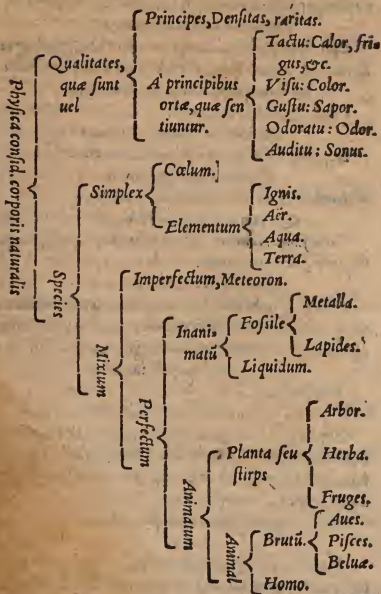 Phyſica conſid. corporis naturalis
Qualitates,
quæ ſunt
uel
Principes, Denſitas, raritas.
A' principibus
ortæ, quæ ſen
tiuntur.
Tactu: Calor, fri-
gus, &c.
Viſu: Color.
Guſtu: Sapor.
Odoratu: Odor.
Auditu: Sonus.
Species
Simplex
Cœlum.]
Elementum
Ignis.
Aër.
Aqua.
Terra.
Mixtum
Imperfectum, Meteoron.
Perfectum
Inani-
matū
Foſsile
Metalla.
Lapides.
Liquidum.
Animatum
Planta ſeu
ſtirps
Arbor.
Herba.
Fruges.
Animal
Brutū.
Aues.
Piſces.
Beluæ.
Homo.